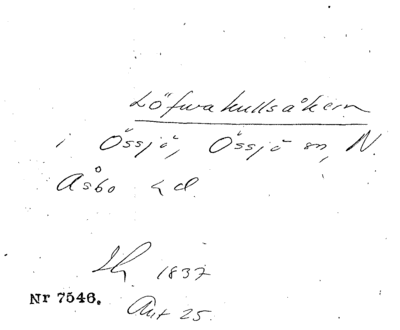 Löfvakullsåkern
i Össjö, Össjö sn, N.
Åsbo hd.
Sk. 1837
Nr 7546.
Akt 25.